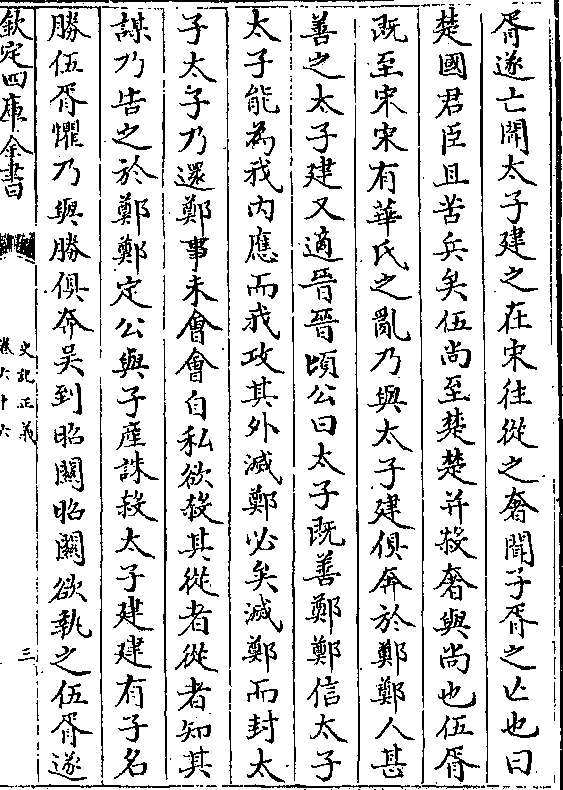 胥遂亡聞太子建之在宋往從之奢聞子胥之亡也曰
楚國君臣且苦兵矣伍尚至楚楚并殺奢與尚也伍胥
既至宋宋有華氏之亂乃與太子建俱奔於鄭鄭人甚
善之太子建又適晉晉頃公曰太子既善鄭鄭信太子
太子能為我内應而我攻其外滅鄭必矣滅鄭而封太
子太子乃還鄭事未會會自私欲殺其從者從者知其
謀乃告之於鄭鄭定公與子產誅殺太子建建有子名
勝伍胥懼乃與勝俱奔吳到昭關昭關欲執之伍胥遂
欽定四庫全書
史記正義
卷六十六
三